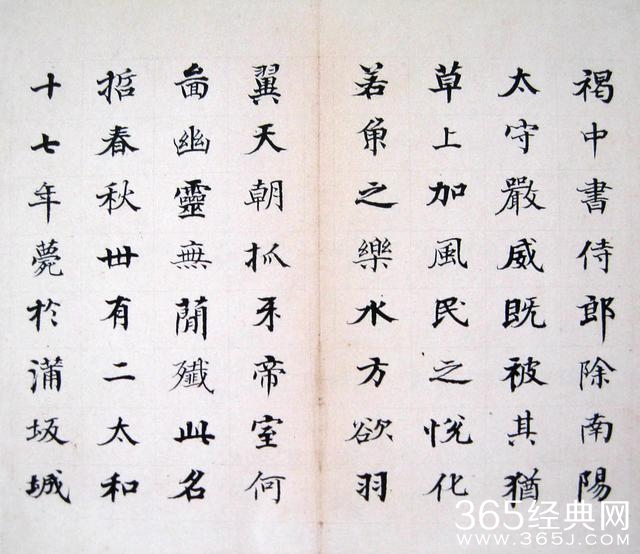 褐中書侍郎除南陽
太守嚴威既被其猶
草上加風民之悅化
若魚之樂水方欲羽
翼天朝抓牙帝室何
啚幽靈無蕳殲此名
哲春秋卅有二太和
十七年薨於蒲坂城
365经典网
WWW.365J.COM